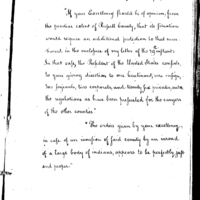 "If your Excellency should be of opinion, from
the peculiar extent of Russell County, that its situation
would require an additional protection to that men-
tioned in the enclosure of my letter of the
In that case, the President of the United States consents,
to your giving direction to one lieutenant, one ensign,
two serjeants, two corporals, and twenty five privates, under
the regulations as have been prescribed for the rangers
of the other counties"
"The orders given by your excellency,
in case of an invasion of said county by an inroad
of a large body of indians, appears to be perfectly just
and proper."